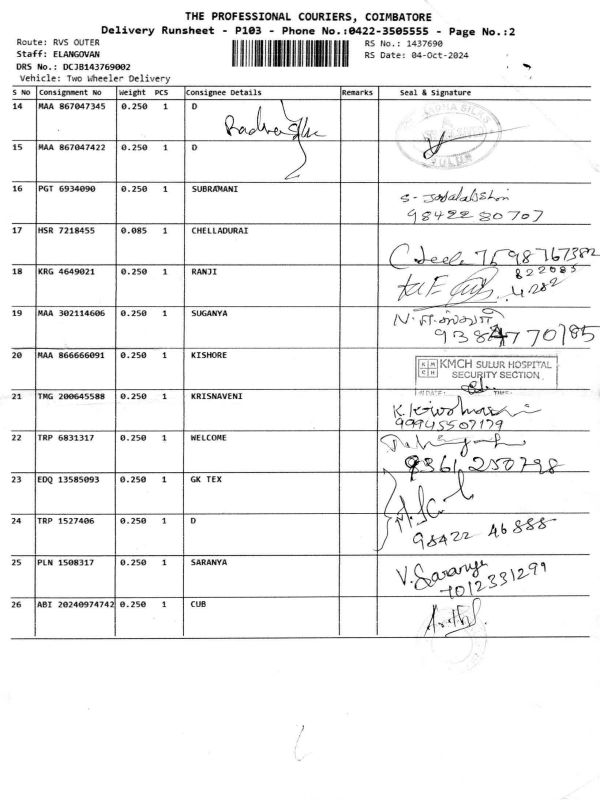 THE PROFESSIONAL COURIERS, COIMBATORE
Delivery Runsheet - P103 - Phone No.:0422-3505555 - Page No.:2
Route: RVS OUTER
Staff: ELANGOVAN
DRS No.: DCJB143769002
Vehicle: Two Wheeler Delivery
RS No.: 1437690
RS Date: 04-Oct-2024
S No Consignment No Weight PCS Consignee Details Remarks Seal & Signature
14 MAA 867047345 0.250 1 D
15 MAA 867047422 0.250 1 D
SULUR
16 PGT 6934090 0.250 1 SUBRAMANI
98422 80707
17 HSR 7218455 0.085 1 CHELLADURAI
7598767382
18 KRG 4649021 0.250 1 RANJI
19 MAA 302114606 0.250 1 SUGANYA
20 MAA 866666091 0.250 1 KISHORE
KMCH SULUR HOSPITAL
SECURITY SECTION
21 TMG 200645588 0.250 1 KRISNAVENI
22 TRP 6831317 0.250 1 WELCOME
9361 250798
23 EDQ 13585093 0.250 1 GK TEX
24 TRP 1527406 0.250 1 D
98422 46888
25 PLN 1508317 0.250 1 SARANYA
V. Saranya
7012331299
26 ABI 20240974742 0.250 1 CUB